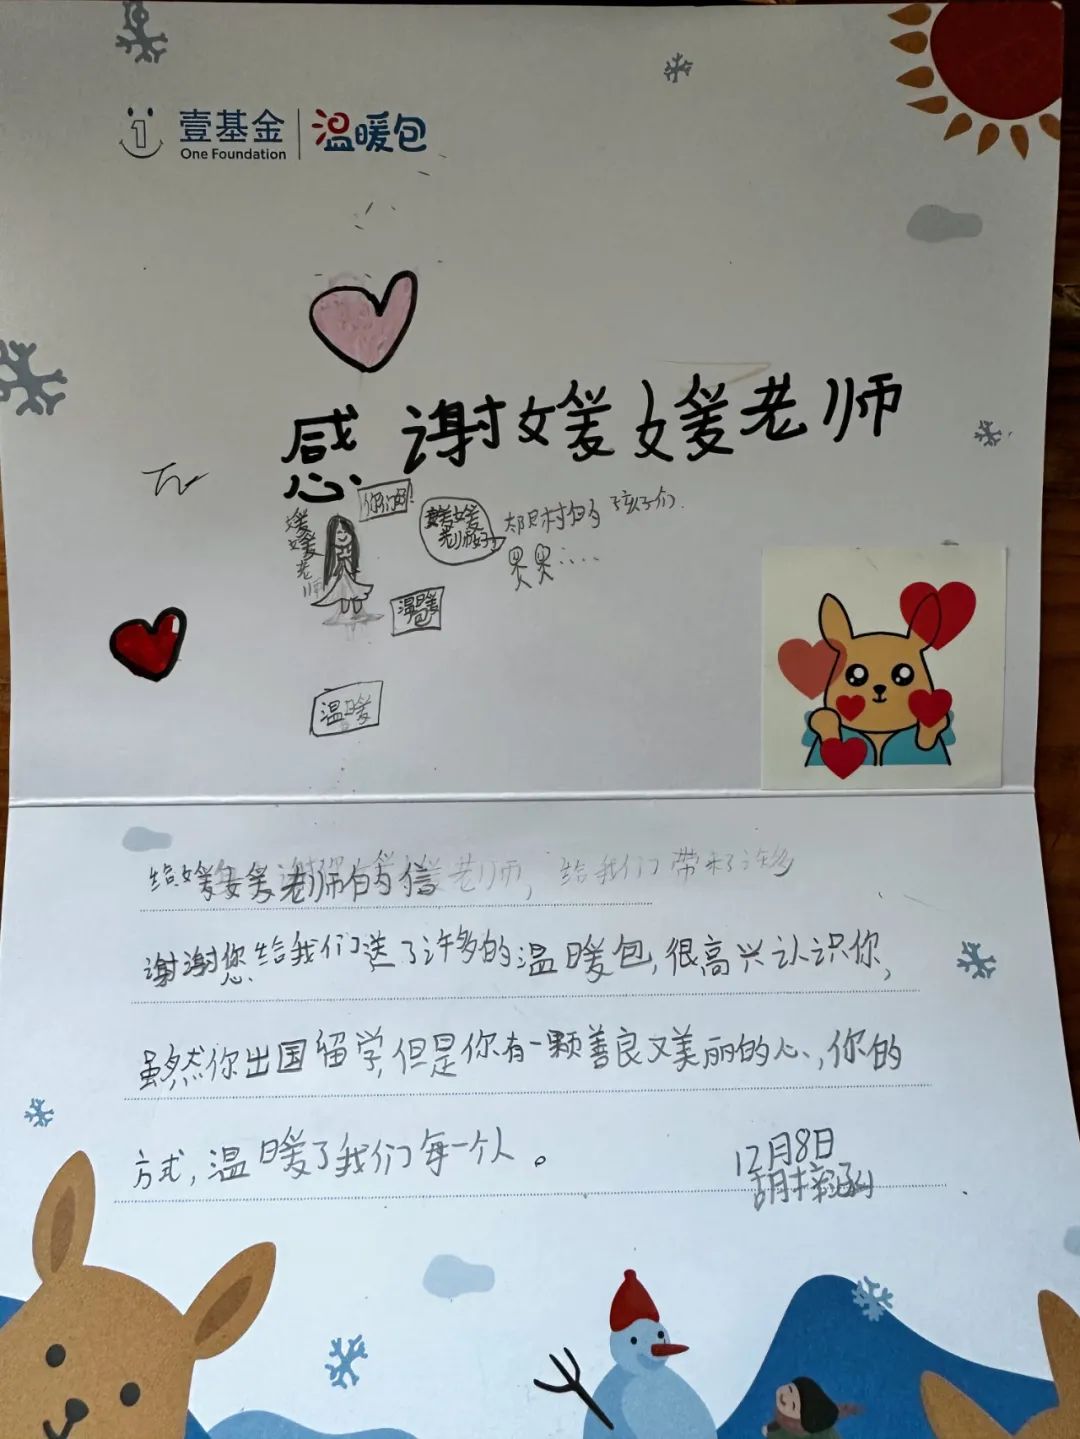 壹基金 温暖包
One Foundation
感谢媛媛老师
你们好!
媛媛老师
媛媛老师好
郎村的孩子们
温暖包
温暖
给媛媛老师的信 老师，给我们带来了许多
谢谢您给我们送了许多的温暖包,很高兴认识你,
虽然你出国留学,但是你有一颗善良又美丽的心,你的
方式,温暖了我们每一个人。
12月8日
胡梓涵